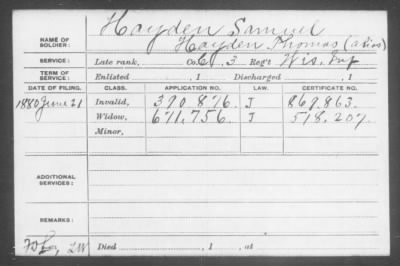 NAME OF SOLDIER: Hayden Samuel
Hayden Thomas (alias)
SERVICE: Late rank, Co. G, 3 Reg't Wis. Inf
TERM OF SERVICE: Enlisted , 1 Discharged , 1
DATE OF FILING. CLASS. APPLICATION NO. LAW. CERTIFICATE NO.
1880 June 21 Invalid, 390.876. J 869.863.
Widow, 671,756. J 518.207.
Minor,
ADDITIONAL SERVICES:
REMARKS:
Died , 1 , at